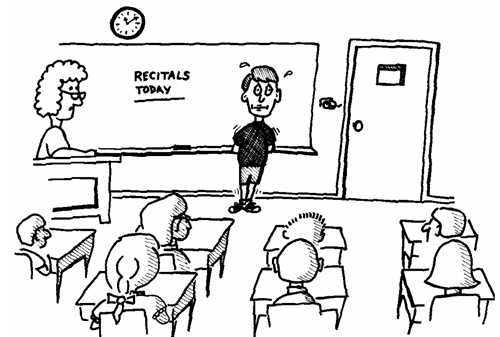 RECITALS
TODAY